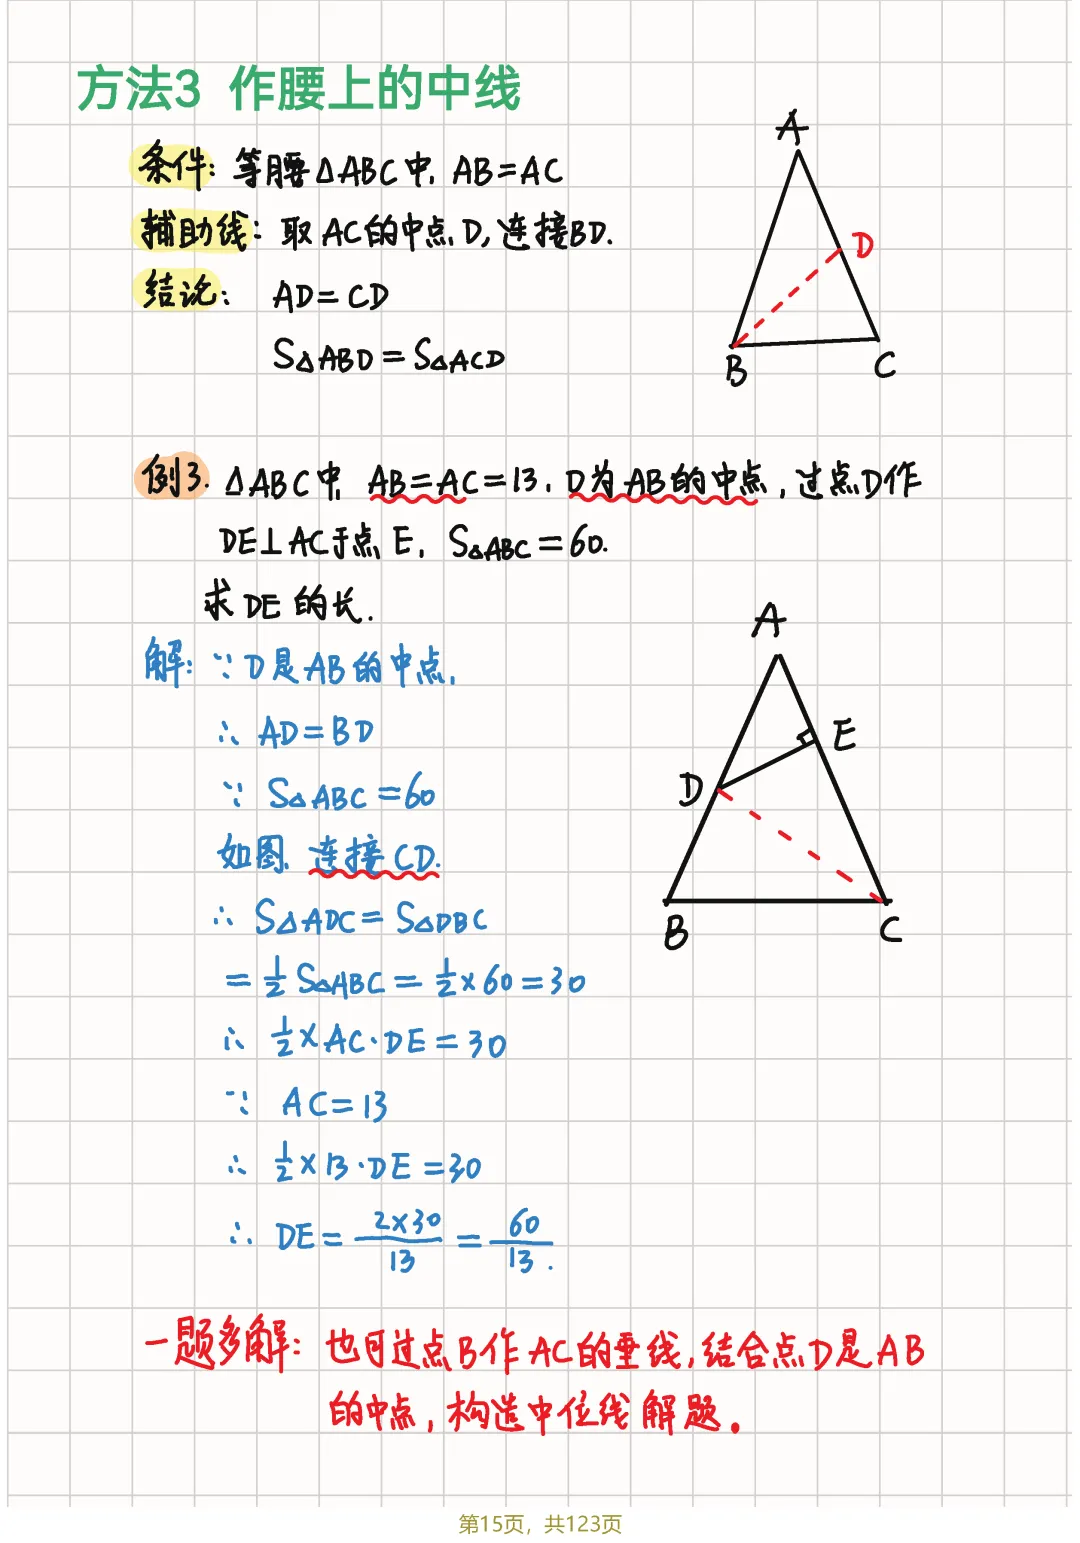 方法3 作腰上的中线
条件: 等腰△ABC中, AB=AC
辅助线: 取AC的中点D, 连接BD.
结论: AD=CD
S△ABD=S△ACD
A
D
B
C
例3. △ABC中, AB=AC=13, D为AB的中点, 过点D作
DE⊥AC于点E, S△ABC=60.
求DE的长.
解: ∵D是AB的中点,
∴ AD=BD
∵ S△ABC=60
如图, 连接CD.
∴ S△ADC=S△DBC
=1/2 S△ABC=1/2×60=30
∴ 1/2×AC·DE=30
∵ AC=13
∴ 1/2×13·DE=30
∴ DE=2×30/13=60/13.
A
E
D
B
C
一题多解: 也可过点B作AC的垂线, 结合点D是AB
的中点, 构造中位线解题。
第15页，共123页